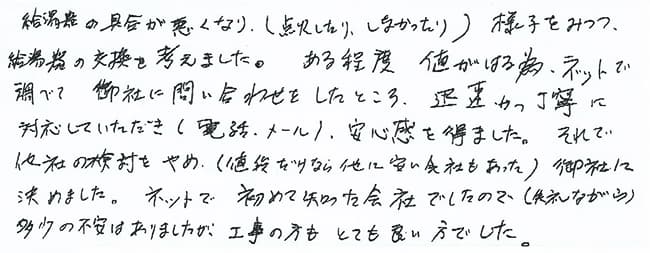 給湯器の具合が悪くなり、(点火したり、しなかったり) 様子をみつつ、
給湯器の交換を考えました。 ある程度 値がはる為、ネットで
調べて 御社に問い合わせをしたところ、迅速かつ丁寧に
対応していただき(電話、メール)、安心感を得ました。 それで
他社の検討をやめ、(値段だけなら他に安い会社もあった) 御社に
決めました。 ネットで 初めて知った会社でしたので、(失礼ながら)
多少の不安はありましたが、工事の方も とても良い方でした。